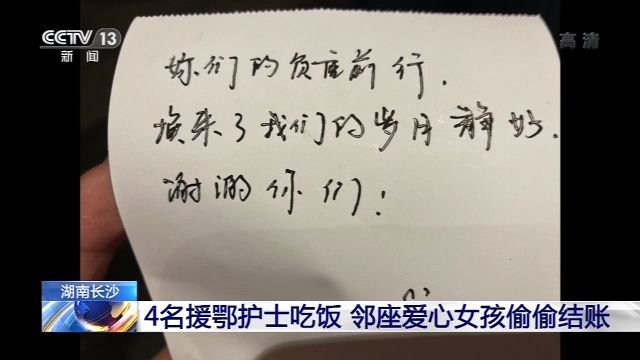 CCTV 13
新闻
高清
你们的负重前行，
换来了我们的岁月静好．
谢谢你们！
湖南长沙
4名援鄂护士吃饭 邻座爱心女孩偷偷结账